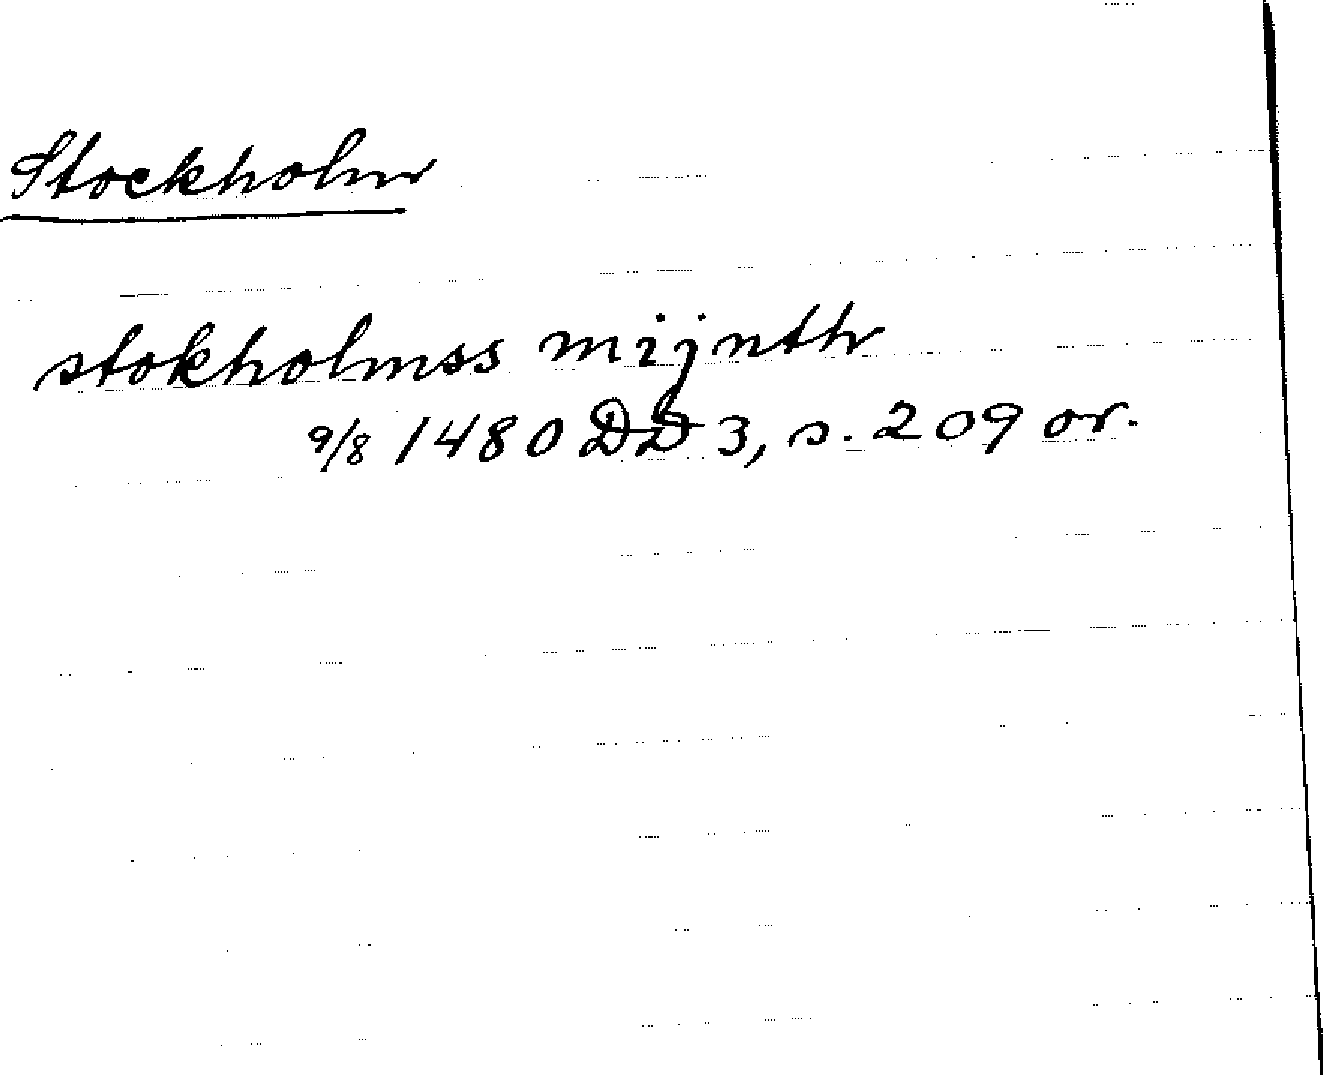 Stockholm
stokholmss mijnth
9/8 1480 DD 3, s. 209 or.